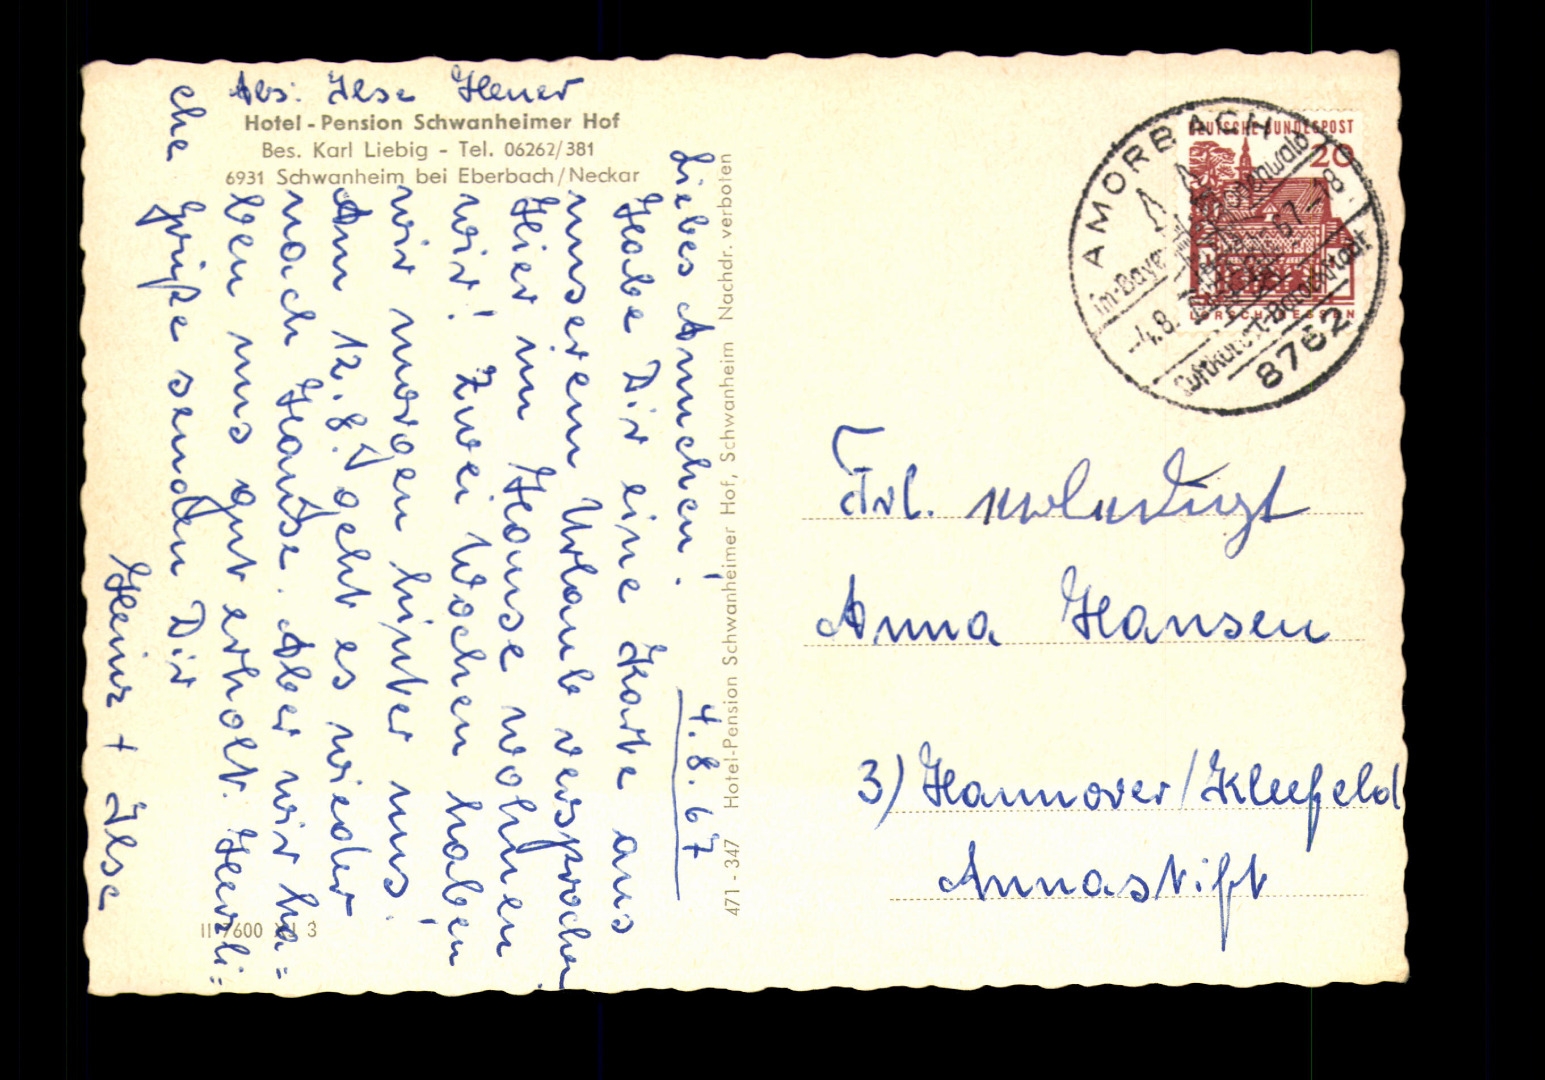 Abs: Ilse Hener
Hotel-Pension Schwanheimer Hof
Bes. Karl Liebig - Tel. 06262/381
6931 Schwanheim bei Eberbach/Neckar
Liebes Annchen!
4.8.67
Habe Dir eine Karte aus
unserem Urlaub versprochen.
Hier im Hause wohnen
wir! Zwei Wochen haben
wir morgen hinter uns!
Am 12.8. geht es wieder
nach Hause. Aber wir ha=
ben uns gut erholt. Herzli=
che Grüße senden Dir
Heinz + Ilse
II 7600 3
471-347 Hotel-Pension Schwanheimer Hof, Schwanheim Nachdr. verboten
DEUTSCHE BUNDESPOST
20
LORSCH HESSEN
AMORBACH
im Bayer. Odenwald
-4.8. 67-18
Luftkurort-Barockstadt
8762
Frl.
Anna Hansen
3) Hannover/Kleefeld
Annastift